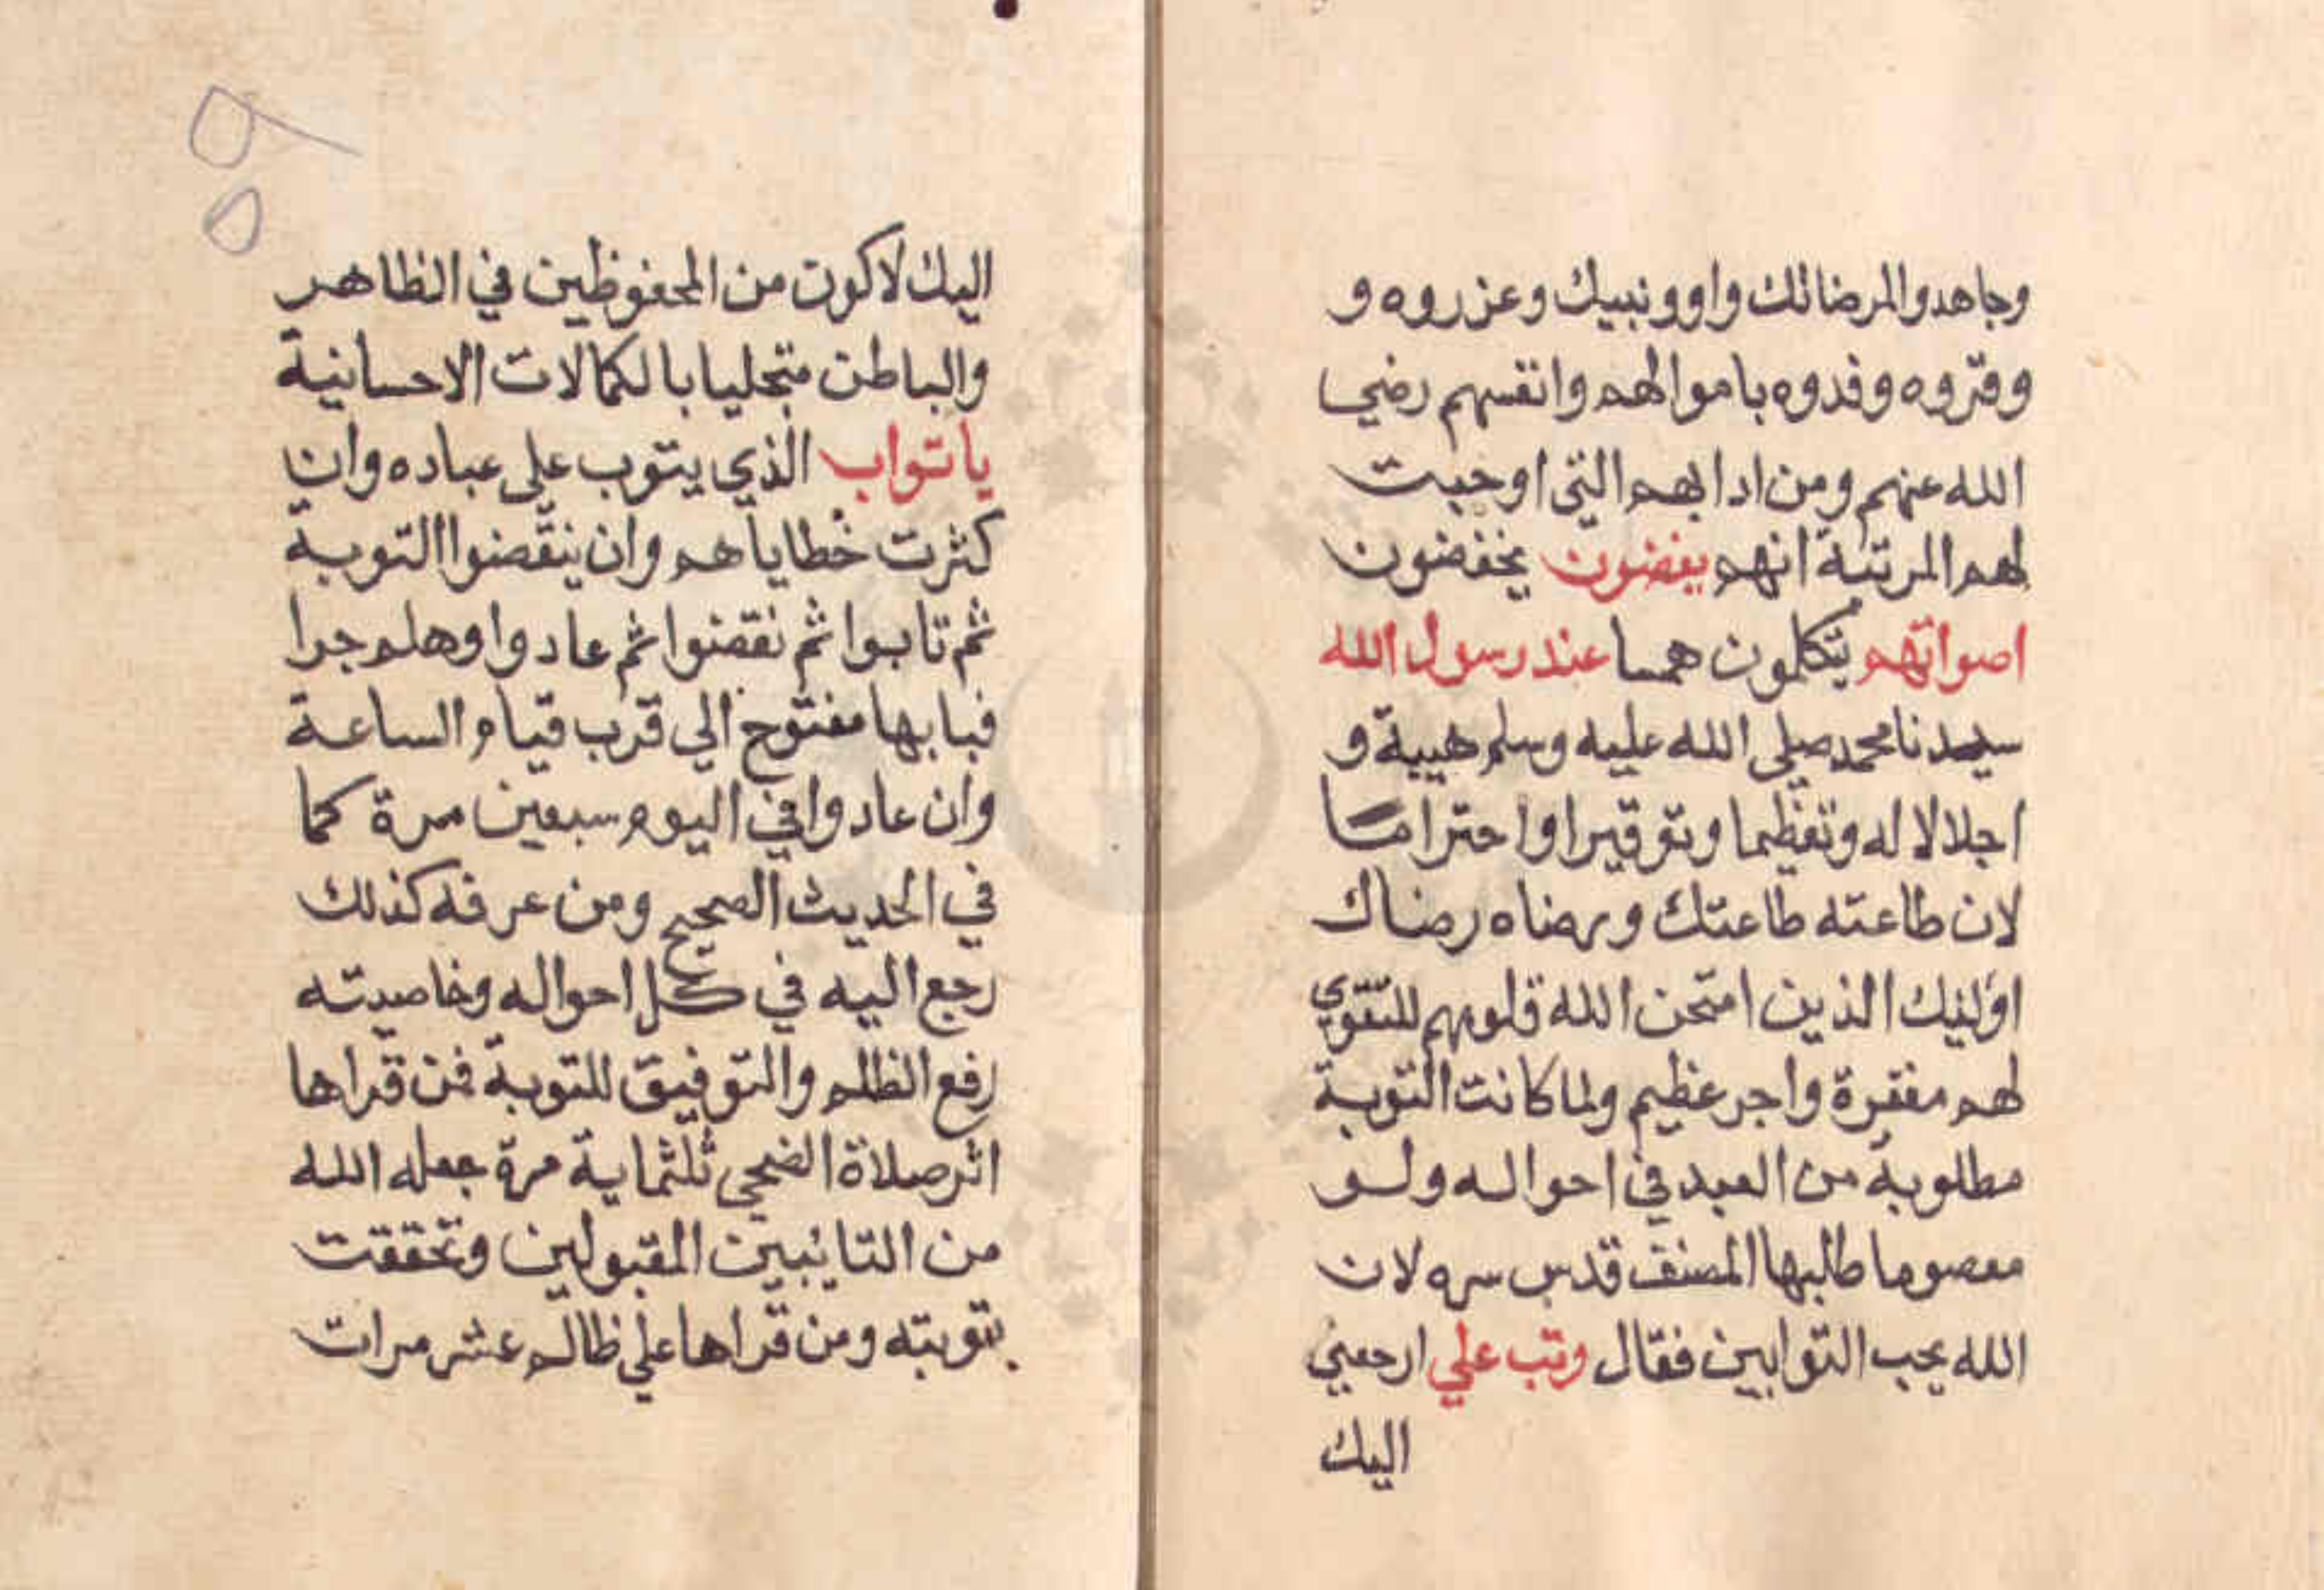 وجاهدوا لمرضاتك واوو نبيك وعزروه و
ووقروه وفدوه باموالهم وانفسهم رضي
الله عنهم ومن ادابهم التي اوجبت
لهم المرتبة انهم يغضون يخفضون
اصواتهم يتكلمون همسا عند رسول الله
سيدنا محمد صلى الله عليه وسلم هيبة و
اجلالا له وتعظيما وتوقيرا واحتراما
لان طاعته طاعتك ورضاه رضاك
اوليك الذين امتحن الله قلوبهم للتقوي
لهم مغفرة واجر عظيم ولما كانت التوبة
مطلوبة من العبد في احواله ولو
معصوما طالبها المصنف قدس سره لان
الله يحب التوابين فقال وتب علي ارجعني
اليك
٩٥
اليك لاكون من المحفوظين في الظاهر
والباطن متجليا بالكمالات الاحسانية
يا تواب الذي يتوب علي عباده وان
كثرت خطاياهم وان ينقضوا التوبة
ثم تابوا ثم نقضوا ثم عادوا وهلم جرا
فبابها مفتوح الي قرب قيام الساعة
وان عادوا في اليوم سبعين مرة كما
في الحديث الصحيح ومن عرفه كذلك
رجع اليه في كل احواله وخاصيته
رفع الظلم والتوفيق للتوبة فمن قراها
اثر صلاة الضحي ثلثماية مرة جعله الله
من التائبين المقبولين وتحققت
بتوبته ومن قراها علي ظالم عشر مرات